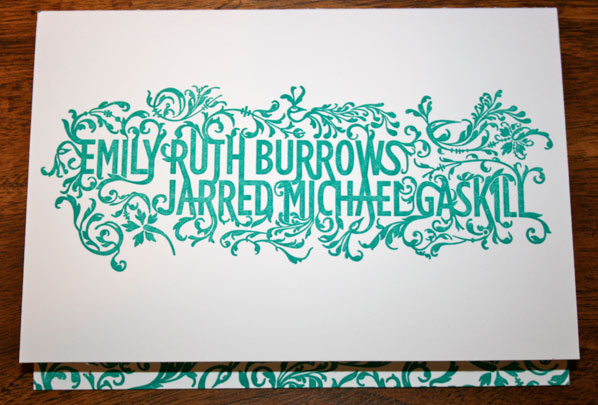 EMILY RUTH BURROWS
JARRED MICHAEL GASKILL